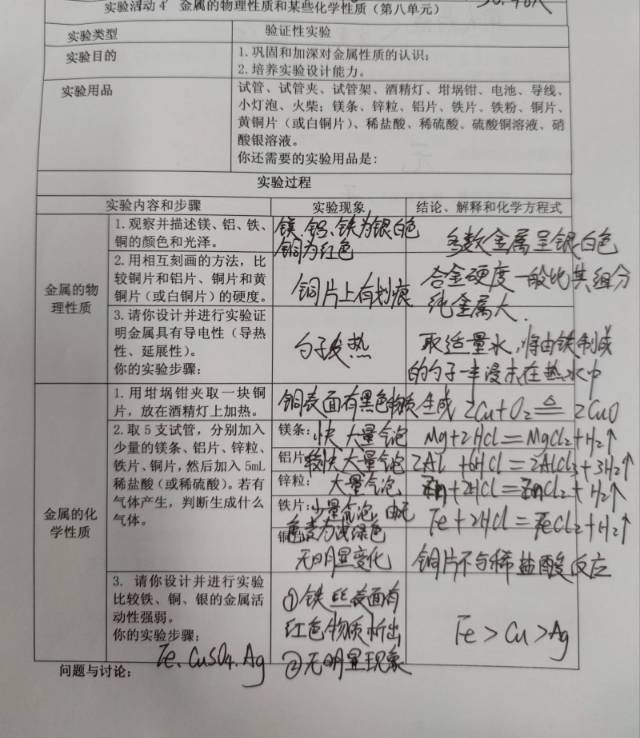 实验活动4 金属的物理性质和某些化学性质（第八单元）
实验类型
验证性实验
实验目的
1.巩固和加深对金属性质的认识；
2.培养实验设计能力。
实验用品
试管、试管夹、试管架、酒精灯、坩埚钳、电池、导线、
小灯泡、火柴；镁条、锌粒、铝片、铁片、铁粉、铜片、
黄铜片（或白铜片）、稀盐酸、稀硫酸、硫酸铜溶液、硝
酸银溶液。
你还需要的实验用品是：
实验过程
实验内容和步骤
实验现象
结论、解释和化学方程式
金属的物
理性质
1.观察并描述镁、铝、铁、
铜的颜色和光泽。
镁、铝、铁为银白色
铜为红色
多数金属呈银白色
2.用相互刻画的方法，比
较铜片和铝片、铜片和黄
铜片（或白铜片）的硬度。
铜片上有划痕
合金硬度一般比其组分
纯金属大.
3.请你设计并进行实验证
明金属具有导电性（导热
性、延展性）。
你的实验步骤：
勺子发热
取适量水，将由铁制成
的勺子一半浸未在热水中
金属的化
学性质
1.用坩埚钳夹取一块铜
片，放在酒精灯上加热。
铜表面有黑色物质生成
2Cu+O₂≜2CuO
2.取5支试管，分别加入
少量的镁条、铝片、锌粒、
铁片、铜片，然后加入5mL
稀盐酸（或稀硫酸）。若有
气体产生，判断生成什么
气体。
镁条：快 大量气泡
Mg+2HCl=MgCl₂+H₂↑
铝片：较快大量气泡
2Al+6HCl=2AlCl₃+3H₂↑
锌粒：大量气泡
Zn+2HCl=ZnCl₂+H₂↑
铁片：少量气泡，由无
色变为浅绿色
Fe+2HCl=FeCl₂+H₂↑
无明显变化
铜片不与稀盐酸反应
3. 请你设计并进行实验
比较铁、铜、银的金属活
动性强弱。
你的实验步骤：
Fe、CuSO₄、Ag
①铁丝表面有
红色物质析出
②无明显现象
Fe>Cu>Ag
问题与讨论：